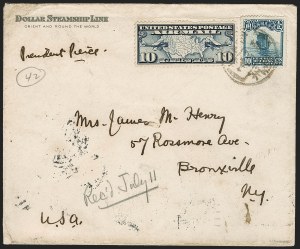 DOLLAR STEAMSHIP LINE
ORIENT AND ROUND THE WORLD
President Pierce
42
UNITED STATES POSTAGE
AIR MAIL
10 10
Mrs. James M. Henry
57 Rossmore Ave.
Bronxville
N.Y.
Rec'd July 11
U.S.A.